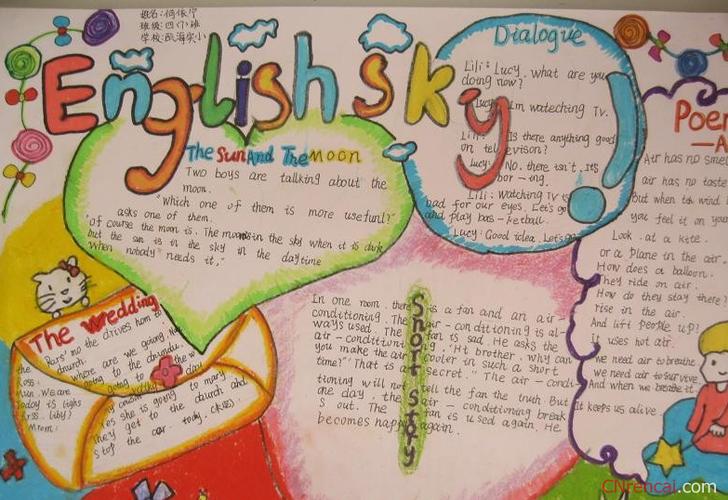 姓名:何依宁
班级:四(7)班
学校:凯海实小
English sky
The Sun And The Moon
Two boys are tallking about the
moon.
"Which one of them is more usefunl?"
asks one of them.
"Of course the moon is. The moon is in the sky when it is dark
but the sun is in the sky in the daytime
when nobody needs it."
Dialogue
Lili: Lucy, what are you
doing now?
Lucy: Im wateching TV.
Lili: Is there anything good
on television?
Lucy: NO. there isn't. It's
bor-ing.
Lili: Watching TV is
bad for our eyes. Let's go
and play bas-ketball.
Lucy: Good idea. Let's go
Poem
—A
Air has no smell
air has no taste
But when the wind
you feel it on your
Look at a kite.
or a plane in the air.
How does a balloon.
They ride on air.
How do they stay there?
rise in the air.
And lift people up?
It uses hot air.
we need air to breathe
we need air to survive
And when we breathe it
It keeps us alive.
The Wedding
the Bars' no the drives hom to
church.
Ross: where are we going
Mun: We are going to the church.
Today is light going to the
Mrs. liby?
Mmm!
Yes she is going to mary
They get to the church and
stop the car. today.
Short Story
In one room, there is a fan and an air-
conditioning. The air-conditioning is al-
ways used. The fan is sad. He asks the
air-conditioning, "Ht brother, why can
you make the air cooler in such a short
time?" "That is a secret." The air-condi-
tioning will not tell the fan the truth. But
one day, the air-conditioning break
s out. The fan is used again. He
becomes happy again.
CNrencai.com